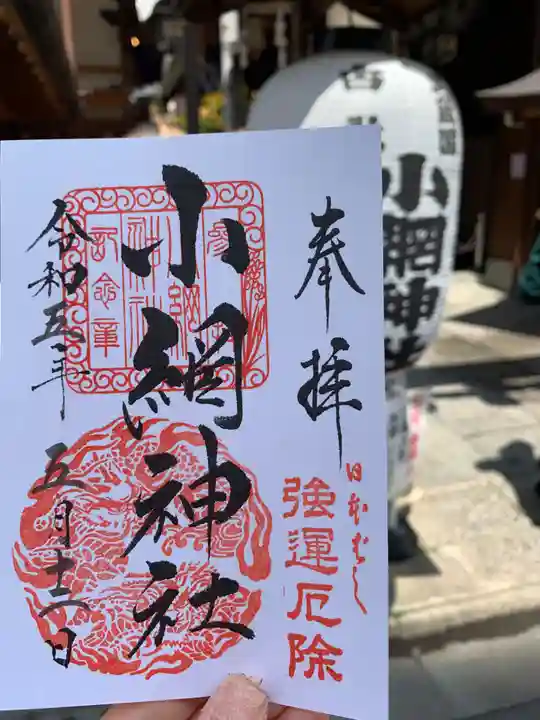 奉拝
日本ばし
強運厄除
小網神社
令和五年
五月十六日
小網神社